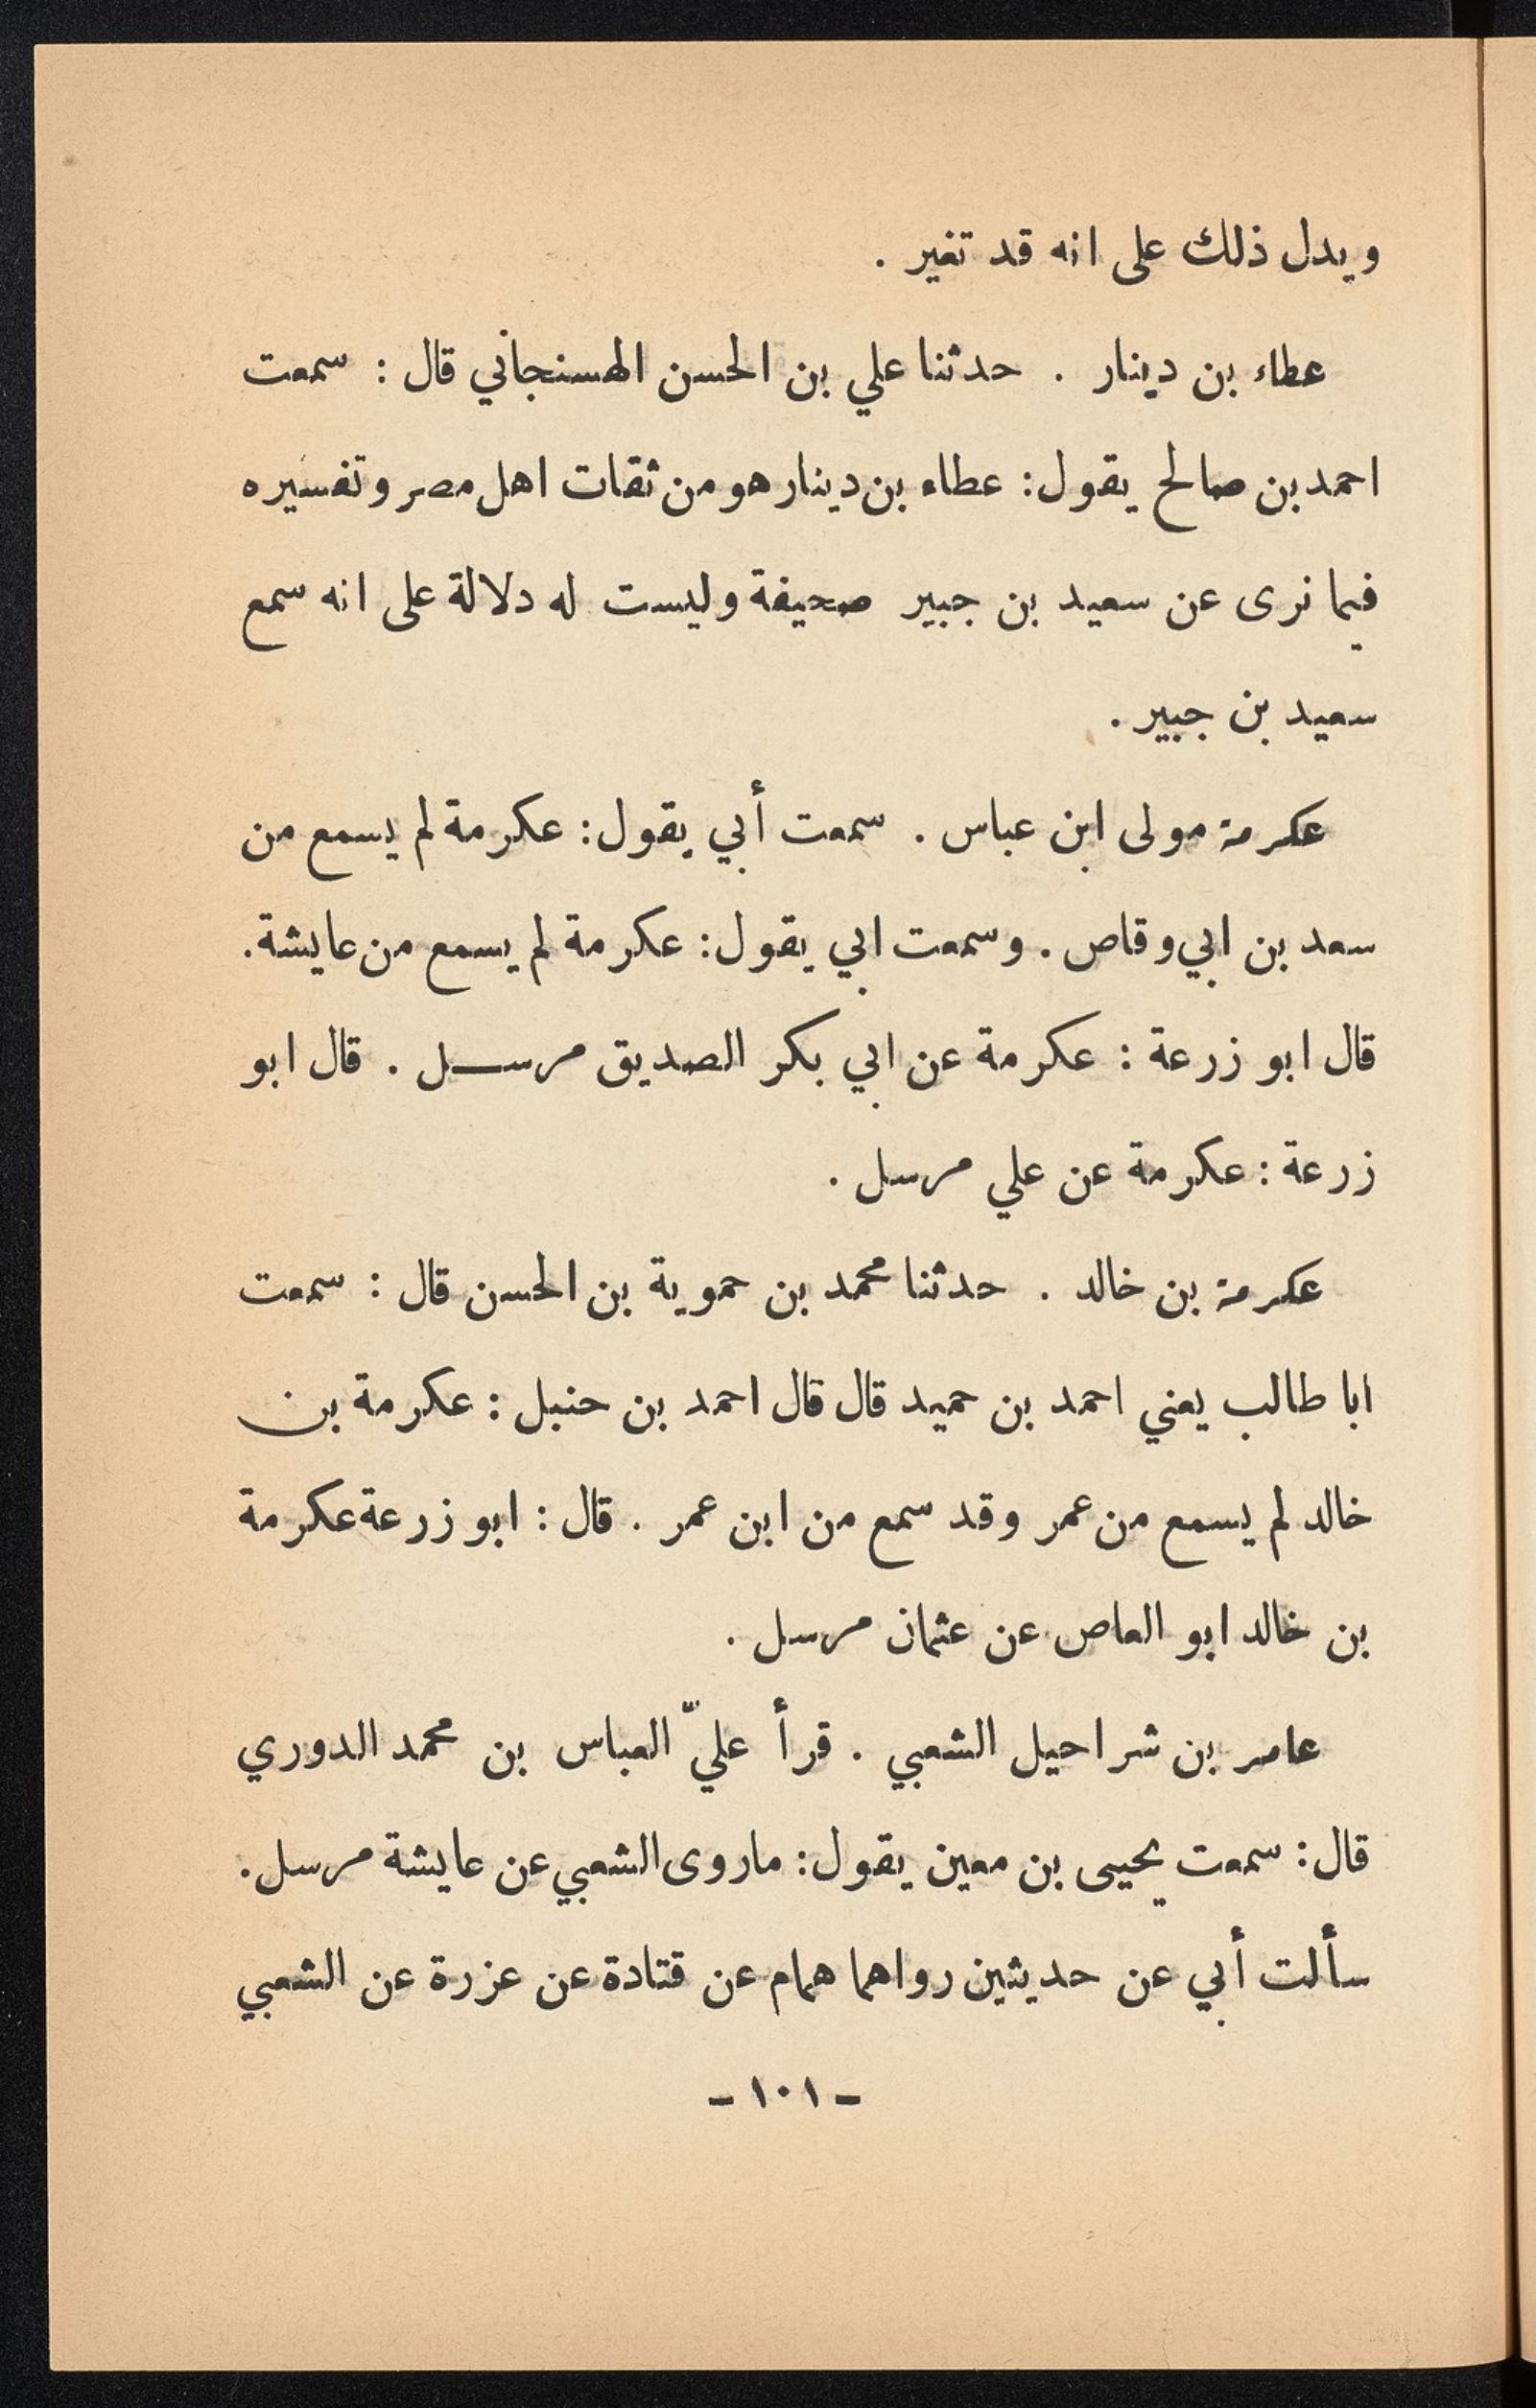 ويدل ذلك على انه قد تغير .
عطاء بن دينار . حدثنا علي بن الحسن الهسنجاني قال : سمعت
احمد بن صالح يقول : عطاء بن دينار هو من ثقات اهل مصر وتفسيره
فيما نرى عن سعيد بن جبير صحيفة وليست له دلالة على انه سمع
سعيد بن جبير .
عكرمة مولى ابن عباس . سمعت أبي يقول : عكرمة لم يسمع من
سعد بن ابي وقاص . وسمعت ابي يقول : عكرمة لم يسمع من عايشة .
قال ابو زرعة : عكرمة عن ابي بكر الصديق مرســل . قال ابو
زرعة : عكرمة عن علي مرسل .
عكرمة بن خالد . حدثنا محمد بن حموية بن الحسن قال : سمعت
ابا طالب يعني احمد بن حميد قال قال احمد بن حنبل : عكرمة بن
خالد لم يسمع من عمر وقد سمع من ابن عمر . قال : ابو زرعة عكرمة
بن خالد ابو العاص عن عثمان مرسل .
عامر بن شراحيل الشعبي . قرأ عليّ العباس بن محمد الدوري
قال : سمعت يحيى بن معين يقول : ما روى الشعبي عن عايشة مرسل .
سألت أبي عن حديثين رواهما همام عن قتادة عن عزرة عن الشعبي
ـ ١٠١ ـ